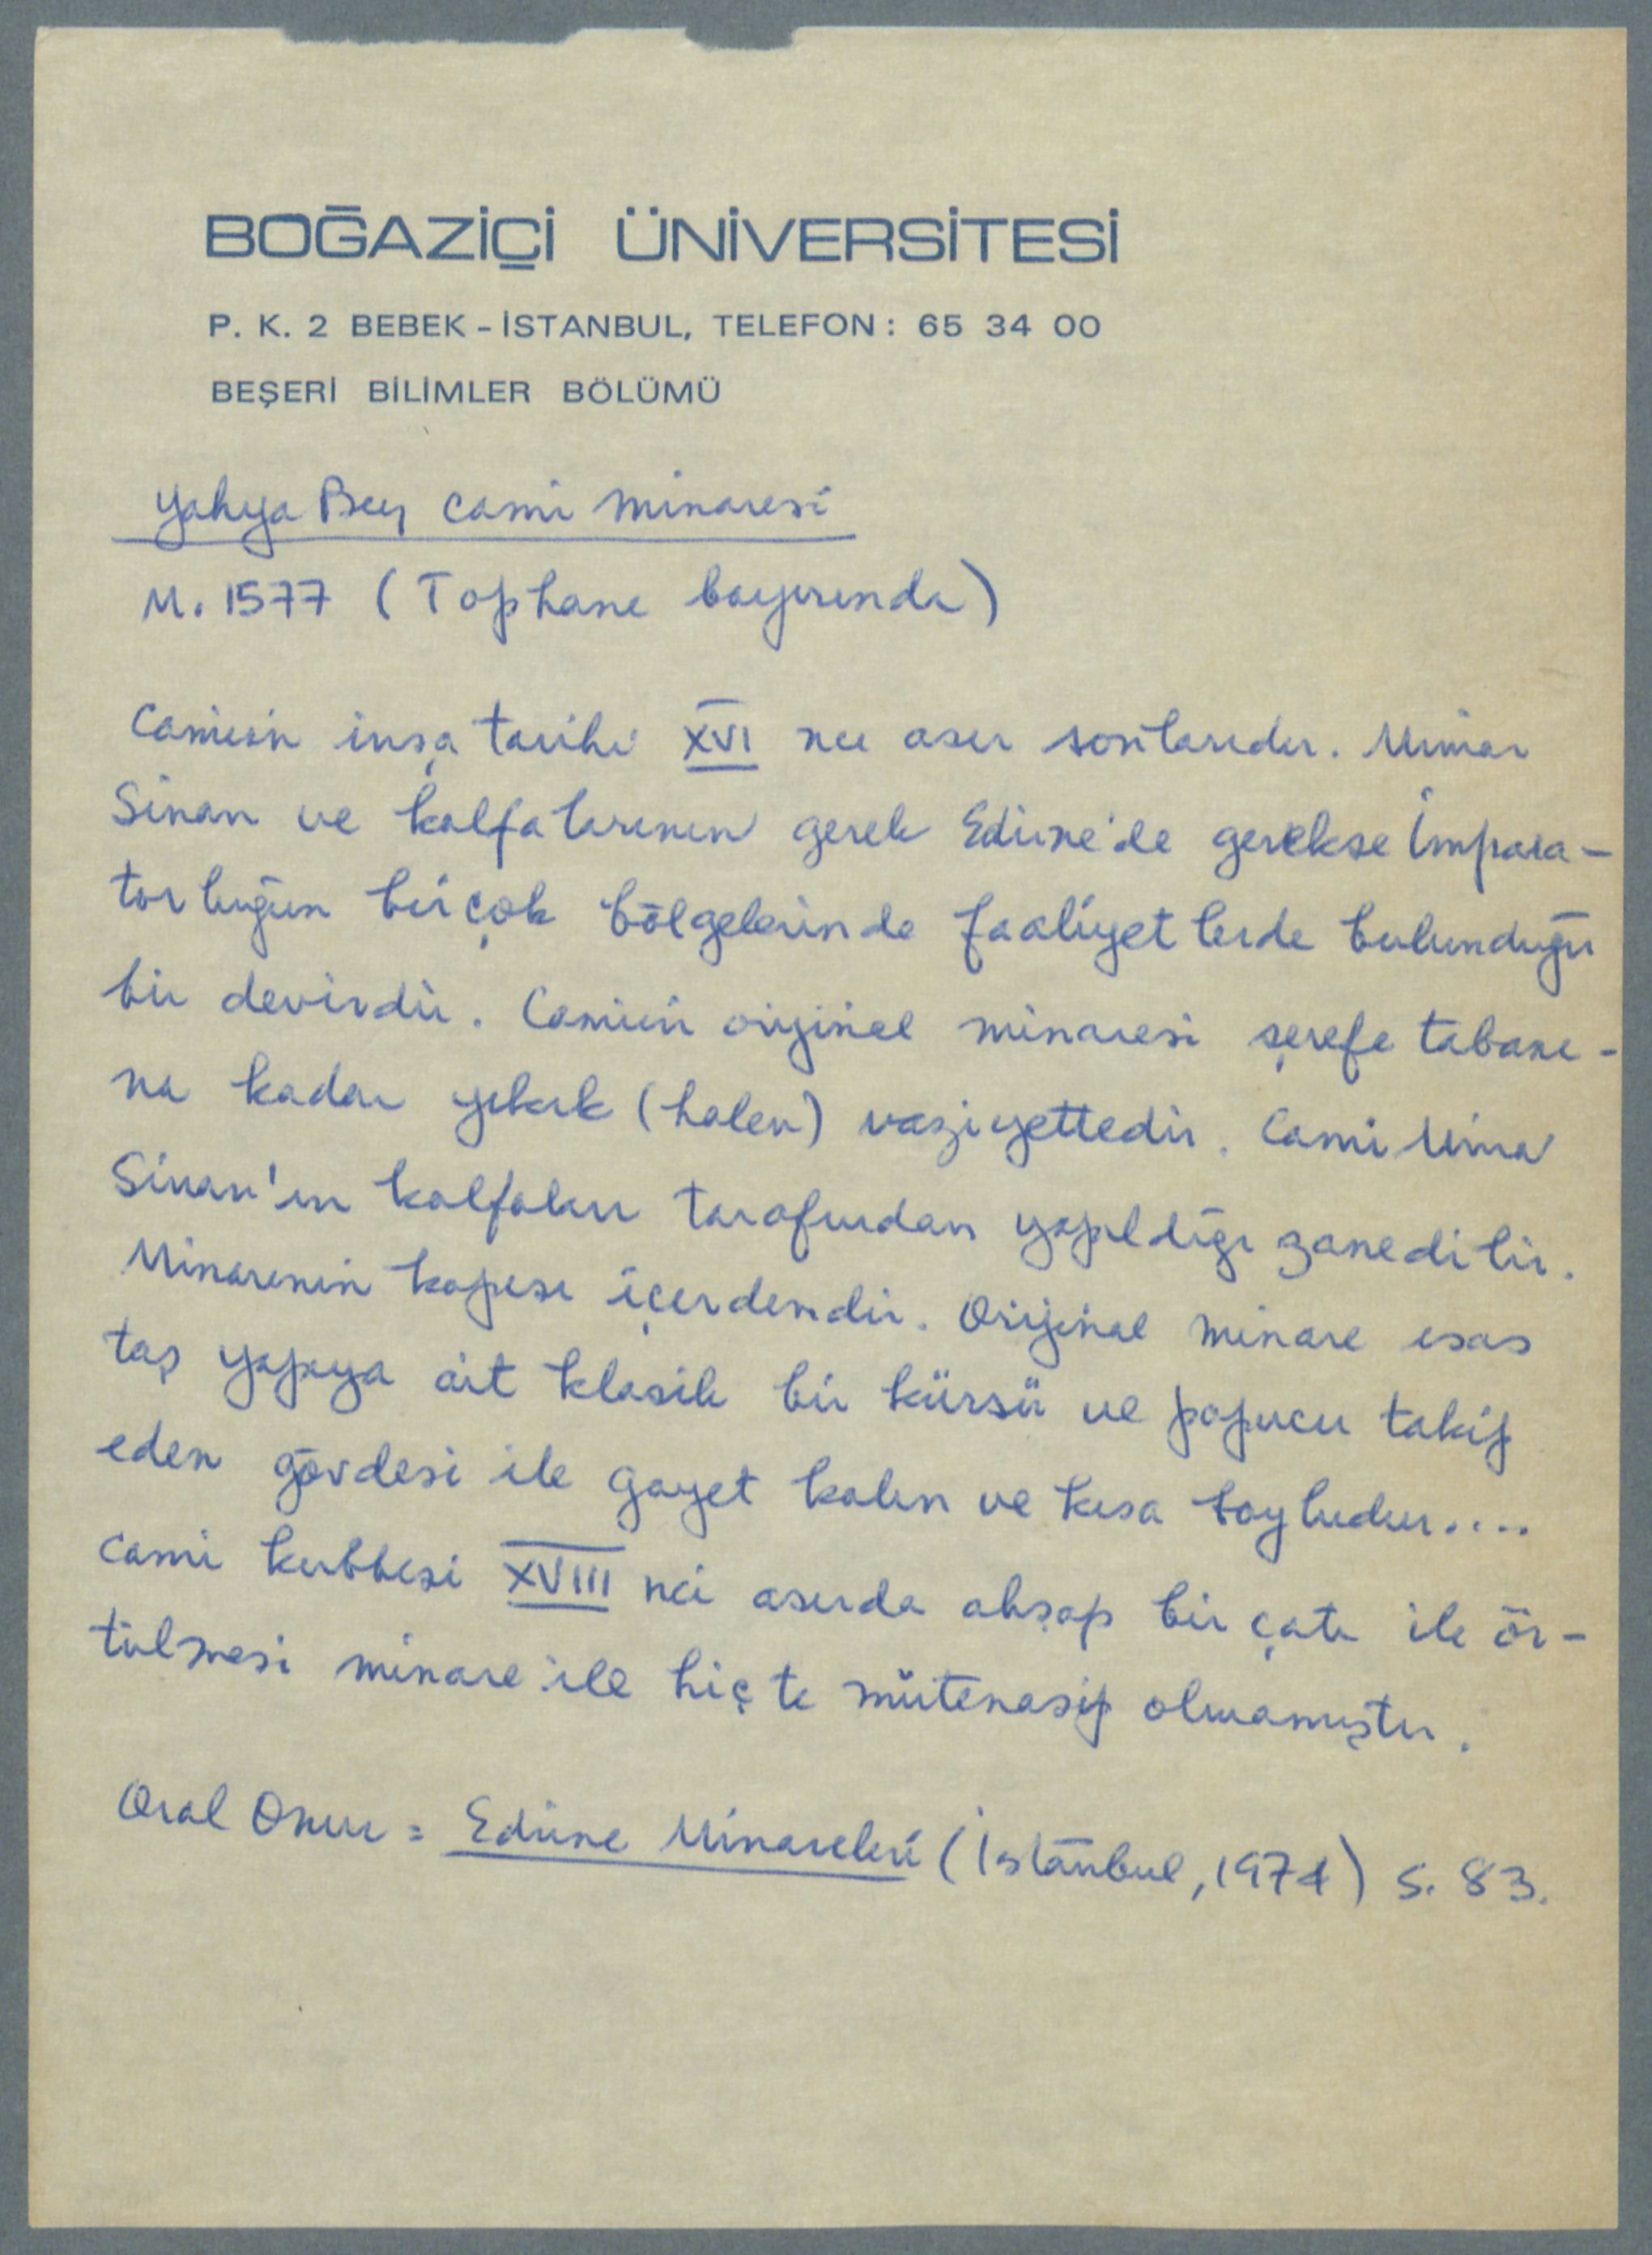 BOĞAZİÇİ ÜNİVERSİTESİ
P. K. 2 BEBEK - İSTANBUL, TELEFON : 65 34 00
BEŞERİ BİLİMLER BÖLÜMÜ
Yahya Bey cami minaresi
M. 1577 (Tophane bayırında)
Camiin inşa tarihi XVI ncı asır sonlarıdır. Mimar
Sinan ve kalfalarının gerek Edirne'de gerekse İmpara-
torluğun birçok bölgelerinde faaliyetlerde bulunduğu
bir devirdir. Camiin orijinal minaresi şerefe tabanı-
na kadar yıkık (halen) vaziyettedir. Cami Mimar
Sinan'ın kalfaları tarafından yapıldığı zanedilir.
Minarenin kapısı içerdendir. Orijinal minare esas
taş yapıya ait klasik bir kürsü ve papucu takip
eden gövdesi ile gayet kalın ve kısa boyludur....
Cami kubbesi XVIII nci asırda ahşap bir çatı ile ör-
tülmesi minare ile hiç te mütenasip olmamıştır.
Oral Onur = Edirne Minareleri (İstanbul, 1974) s. 83.